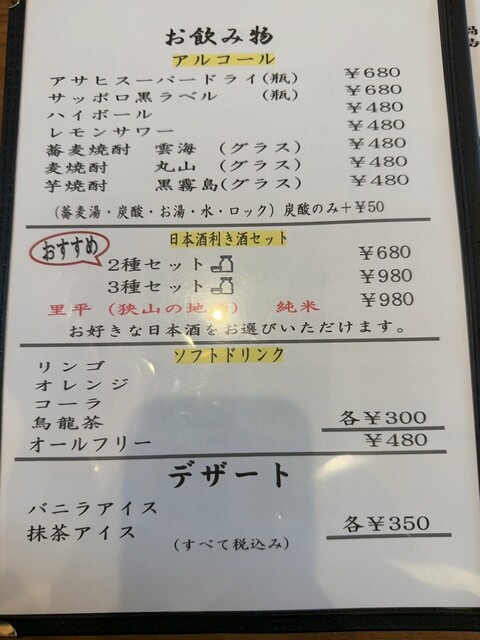 お飲み物
アルコール
アサヒスーパードライ(瓶) ￥680
サッポロ黒ラベル (瓶) ￥680
ハイボール ￥480
レモンサワー ￥480
蕎麦焼酎 雲海 (グラス) ￥480
麦焼酎 丸山 (グラス) ￥480
芋焼酎 黒霧島(グラス) ￥480
(蕎麦湯・炭酸・お湯・水・ロック) 炭酸のみ＋￥50
日本酒利き酒セット
おすすめ
2種セット ￥680
3種セット ￥980
里平 (狭山の地酒) 純米 ￥980
お好きな日本酒をお選びいただけます。
ソフトドリンク
リンゴ
オレンジ
コーラ
烏龍茶 各￥300
オールフリー ￥480
デザート
バニラアイス
抹茶アイス 各￥350
(すべて税込み)